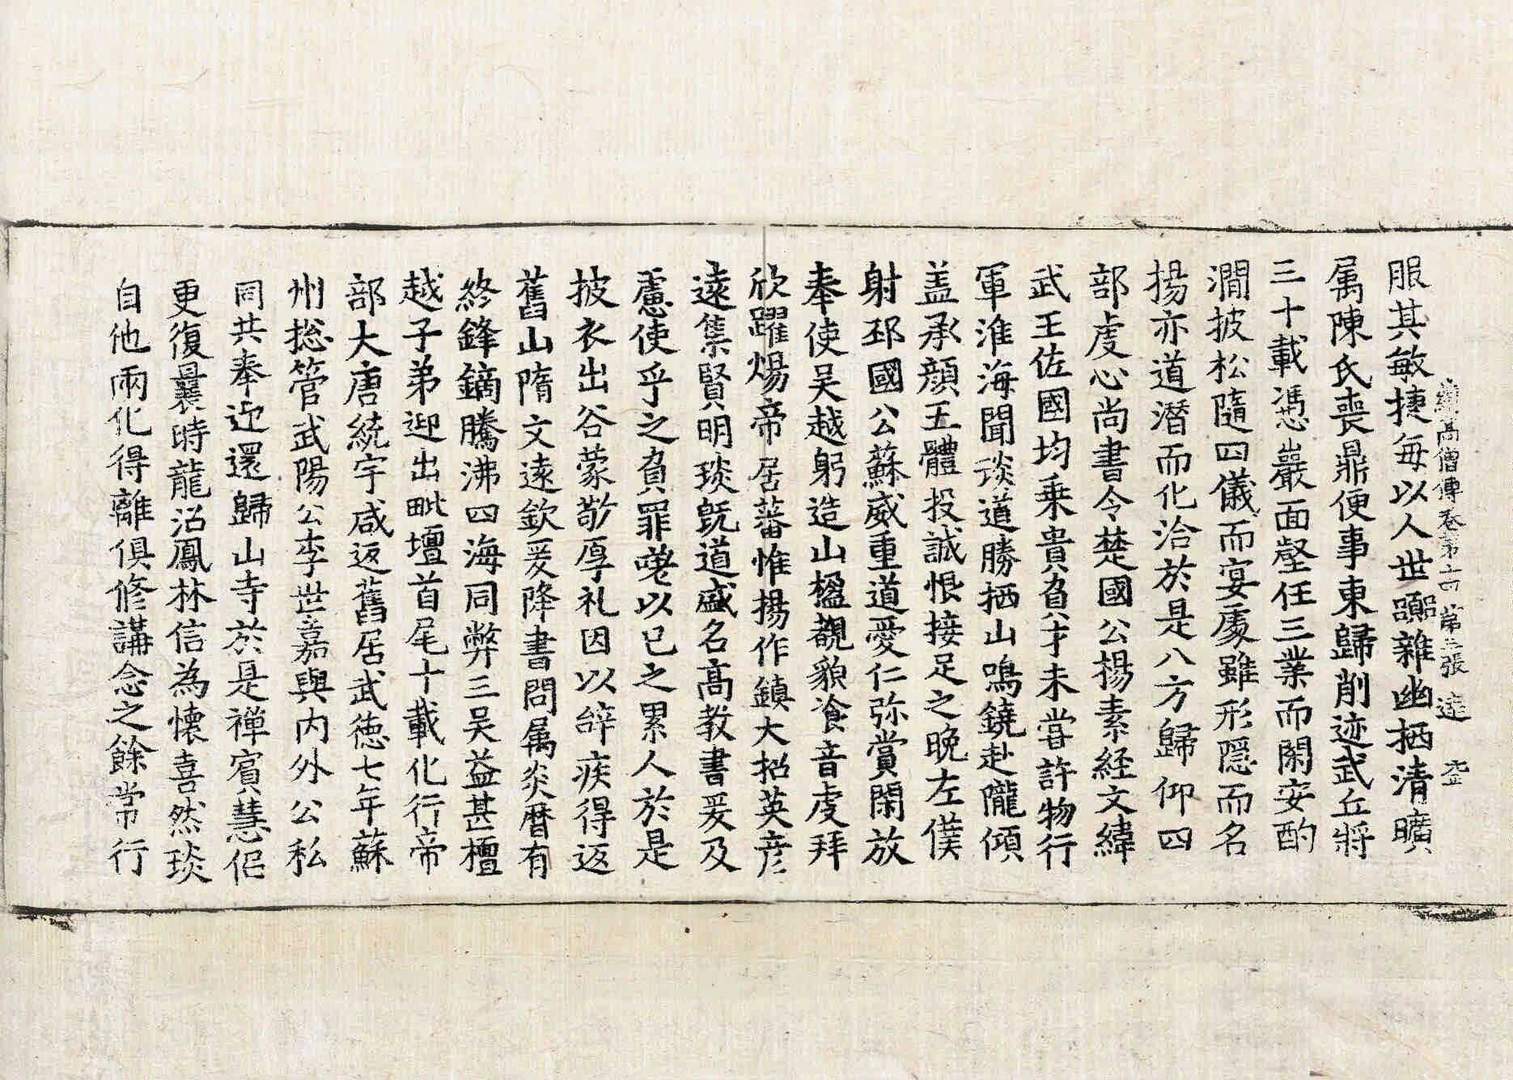 續高僧傳卷第十四 第三張 達
服其敏捷每以人世嚻雜幽栖清曠
属陳氏喪鼎便事東歸削迹武丘將
三十載馮巖面壑任三業而閑安酌
澗披松隨四儀而宴處雖形隱而名
揚亦道潛而化洽於是八方歸仰四
部虔心尚書令楚國公揚素經文緯
武王佐國均乗貴負才未甞許物行
軍淮海聞琰道勝栖山鳴鐃赴隴傾
盖承顔五體投誠恨接足之晚左僕
射邳國公蘇威重道愛仁弥賞閑放
奉使吴越躬造山楹覩貌湌音虔拜
欣躍煬帝居蕃惟揚作鎮大招英彦
遠集賢明琰旣道盛名高教書爰及
慮使乎之負罪嗟以己之累人於是
披衣出谷蒙敬厚礼因以辝疾得返
舊山隋文遠欽爰降書問属炎曆有
終鋒鏑騰沸四海同弊三吴益甚檀
越子弟迎出毗壇首尾十載化行帝
部大唐統宇咸返舊居武德七年蘇
州揔管武陽公李世嘉與内外公私
同共奉迎還歸山寺於是禪賓慧侣
更復曩時龍沼鳳林信為懷喜然琰
自他兩化得離俱修講念之餘常行